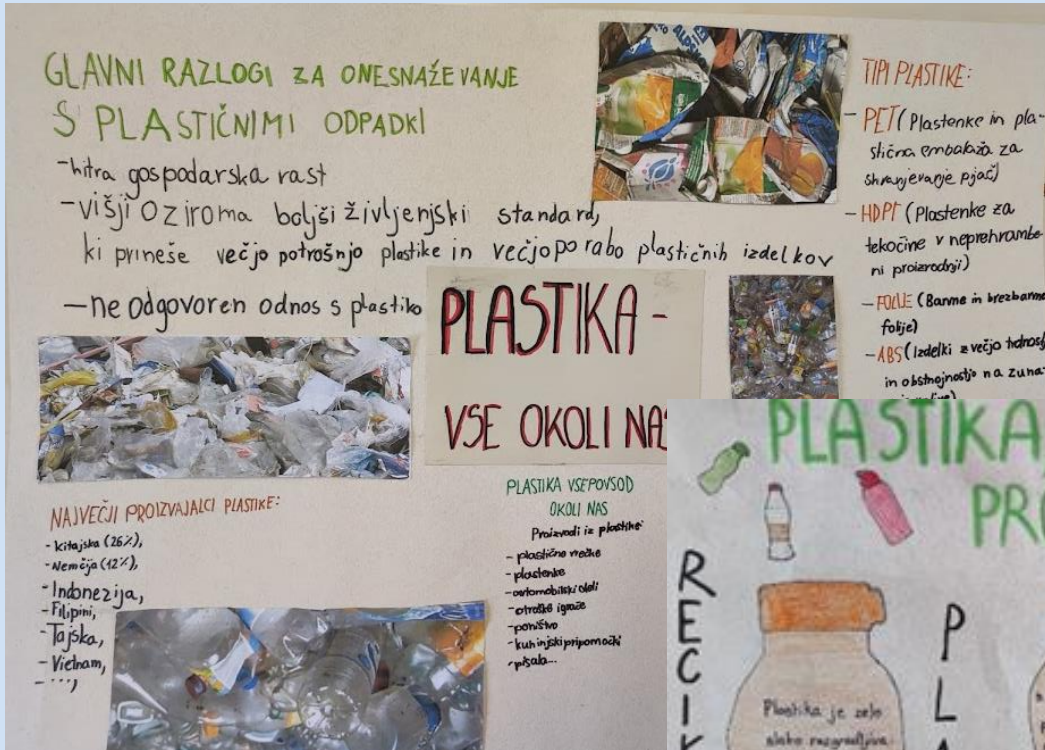 GLAVNI RAZLOGI ZA ONESNAŽEVANJE
S PLASTIČNIMI ODPADKI
-hitra gospodarska rast
-višji oziroma boljši življenjski standard,
ki prinese večjo potrošnjo plastike in večjo porabo plastičnih izdelkov
-ne odgovoren odnos s plastiko
TIPI PLASTIKE:
- PET (Plastenke in pla-
stična embalaža za
shranjevanje pijač)
- HDPE (Plastenke za
tekočine v neprehrambe-
ni proizvodnji)
- FOLIJE (Barvne in brezbarvne
folije)
- ABS (Izdelki z večjo trdnostj
in obstojnostjo na zuna
PLASTIKA -
VSE OKOLI NAS
NAJVEČJI PROIZVAJALCI PLASTIKE:
- Kitajska (26%),
- Nemčija (12%),
- Indonezija,
- Filipini,
- Tajska,
- Vietnam,
- ...,
PLASTIKA VSEPOVSOD
OKOLI NAS
Proizvodi iz plastike
- plastične vrečke
- plastenke
- avtomobilski deli
- otroške igrače
- pohištvo
- kuhinjski pripomočki
- pisala...
PLASTIKA
PRO
RECIK
PLA
Plastika je zelo
slabo razgradljiva